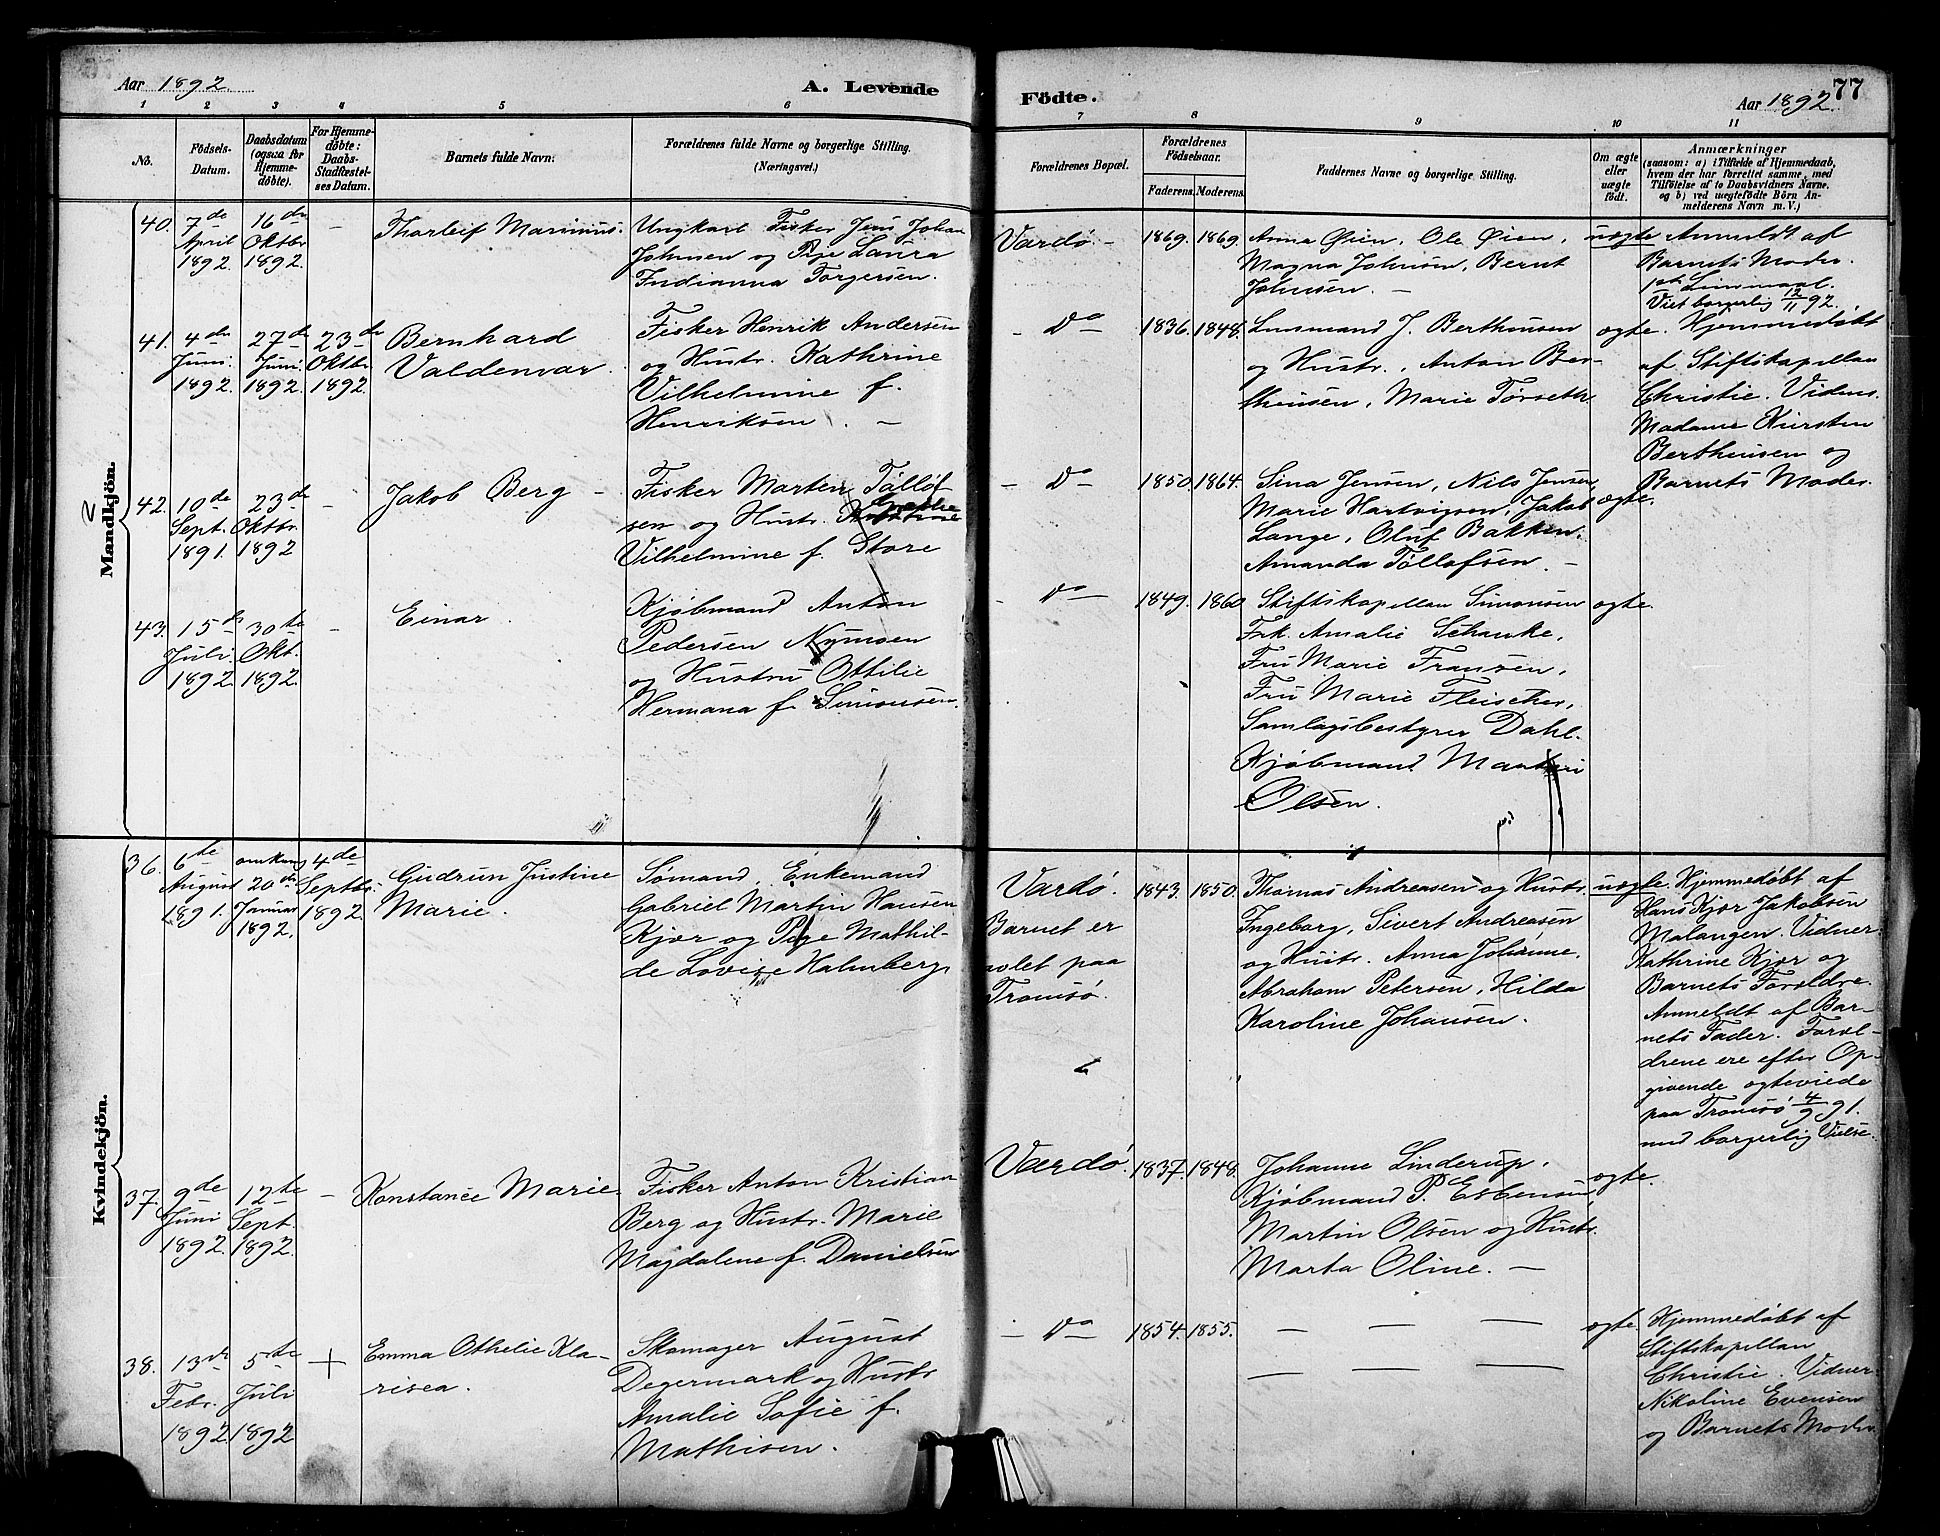 Aar 1892.
A. Levende
Födte.
Aar 1892.
77
1 2 3 4 5 6 7 8 9 10 11
No.
Födsels-
Datum.
Daabsdatum
(ogsaa for
Hjemme-
døbte).
For Hjemme-
døbte:
Daabs-
Stadfæstel-
ses Datum.
Barnets fulde Navn.
Forældrenes fulde Navne og borgerlige Stilling.
(Næringsvei.)
Forældrenes Bopæl.
Forældrenes
Födselsaar.
Faderens. Moderens.
Faddernes Navne og borgerlige Stilling.
Om ægte
eller
uægte
født.
Anmærkninger
(saasom: a) i Tilfælde af Hjemmedaab,
hvem der har forrettet samme, med
Tilföielse af to Daabsvidners Navne,
og b) ved uægtefödte Börn An-
melderens Navn m. V.)
Mandkjön.
40.
7de
April
1892.
16de
Oktbr
1892.
-
Tharleif Marinius.
Ungkarl Fisker Jens Johan
Johnsen og Pige Laura
Indianna Torgersen.
Vardø -
1869. 1869.
Anna Øien, Ole Øien,
Magna Johnsen, Bernt
Johnsen. -
uægte
Anmeldt af
Barnets Moder.
1ste Leiermaal.
Viet borgerlig 12/11 92.
41.
4de
Juni
1892.
27de
Juni
1892
23de
Oktbr
1892.
Bernhard
Valdemar.
Fisker Henrik Andersen
og Hustr. Kathrine
Vilhelmine f.
Henriksen. -
- Do -
1836. 1848.
Lensmand J. Berthensen
og Hustr., Anton Ber-
thensen, Marie Torseth.
ægte.
Hjemmedøbt
af Stiftskapellan
Christie. Vidner
Madame Kirsten
Berthensen og
Barnets Moder.
42.
10de
Sept.
1891.
23de
Oktbr.
1892
-
Jakob Berg -
Fisker Morten Tøllef-
sen og Hustr.
Vilhelmine f. Store
- Do -
1850. 1864.
Sina Jensen, Nils Jensen
Marie Hartvigsen, Jakob
Lange, Oluf Bakken.
Amanda Tøllefsen. -
ægte.
43.
15de
Juli
1892.
30te
Okt.
1892.
-
Einar.
Kjøbmand Anton
Pedersen Nymoen
og Hustru Ottilie
Hermana f. Simonsen.
- Do -
1849. 1860
Stiftskapellan Simonsen
Frk. Amalie Schanke,
Fru Marie Fransen,
Fru Marie Fleischer,
Samlagsbestyrer Dahl.
Kjøbmand
Olsen.
ægte.
Kvindekjön.
36.
6te
August
1891.
omkring
20de
Januar
1892.
4de
Septbr.
1892.
Gudrun Justine
Marie.
Sømand, Enkemand
Gabriel Martin Hansen
Kjær og Pige Mathil-
de Lovise Halmberg
Vardø.
Barnet er
avlet paa
Tromsø.
1843. 1850.
Thomas Andreasen og Hustr.
Ingeborg, Sivert Andreasen
og Hustr. Anna Johanne.
Abraham Petersen, Hilda
Karoline Johansen.
uægte.
Hjemmedøbt af
Hans Kjær Jakobsen
Malangen. Vidner
Kathrine Kjær og
Barnets Forældre.
Anmeldt af Bar-
nets Fader. Foræl-
drene ere efter Op-
givende ægteviede
paa Tromsø 4/9 91.
med borgerlig Vielse.
37.
9de
Juni
1892.
12te
Sept.
1892.
-
Konstance Marie.
Fisker Anton Kristian
Berg og Hustr. Marie
Magdalene f. Danielsen
Vardø.
1837. 1848.
Johanne Linderup,
Kjøbmand P. Esbensen,
Martin Olsen og Hustr.
Marta Oline. -
ægte.
38.
13de
Febr.
1892.
5te
Juli
1892
+
Emma Othelie Kla-
risea.
Skomager August
Degermark og Hustr
Amalie Sofie f.
Mathisen.
- Do -
1854. 1855.
- - -
- - -
ægte.
Hjemmedøbt af
Stiftskapellan
Christie. Vidner
Nikoline Evensen
og Barnets Moder